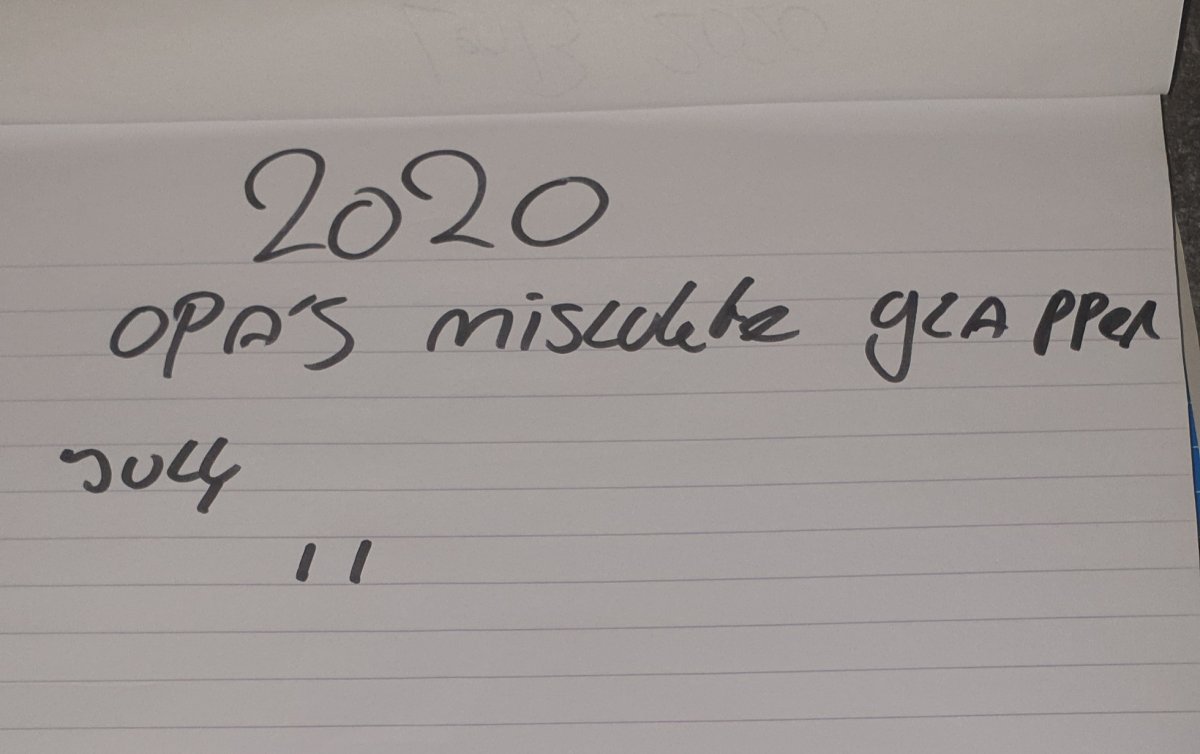 2020
OPA'S mislukte gRAPPeN
July
11